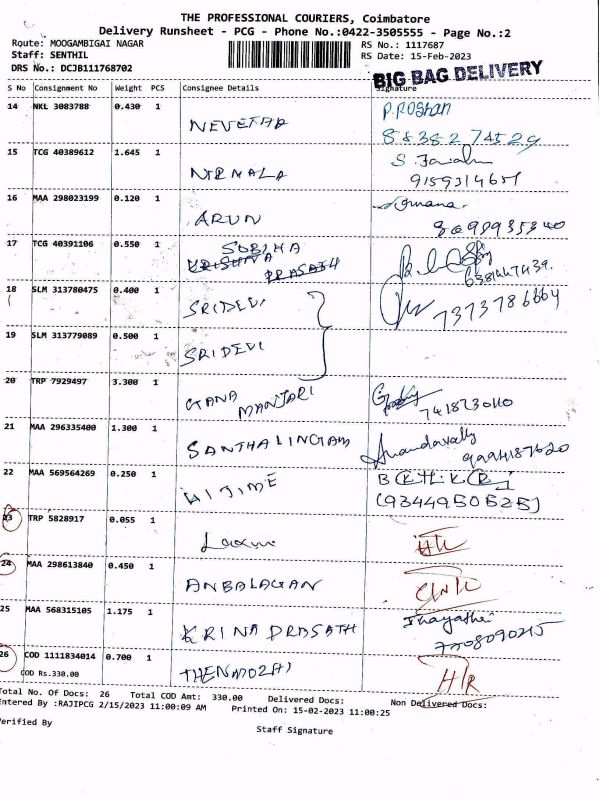 THE PROFESSIONAL COURIERS, Coimbatore
Delivery Runsheet - PCG - Phone No.:0422-3505555 - Page No.:2
Route: MOOGAMBIGAI NAGAR RS No.: 1117687
Staff: SENTHIL RS Date: 15-Feb-2023
DRS No.: DCJB111768702 BIG BAG DELIVERY
S No Consignment No Weight PCS Consignee Details Signature
14 NKL 3083788 0.430 1 P. Roshan
8838274529
15 TCG 40389612 1.645 1 NIRMALA
16 MAA 298023199 0.120 1 ARUN
17 TCG 40391106 0.550 1 SOBIHA
KRISHNA
PRASATH
18 SLM 313780475 0.400 1 SRIDEVI 7373786664
19 SLM 313779089 0.500 1 SRIDEVI
20 TRP 7929497 3.300 1 GIANA
MANJARI
21 MAA 296335400 1.300 1 SANTHALINGAM Anandavally
22 MAA 569564269 0.250 1
(9344950525)
23 TRP 5828917 0.055 1 Laxmi
24 MAA 298613840 0.450 1 ANBALAGAN
25 MAA 568315105 1.175 1 KRINA PRASATH
26 COD 1111834014 0.700 1 THENMOZAI
COD Rs.330.00
Total No. Of Docs: 26 Total COD Amt: 330.00 Delivered Docs: Non Delivered Docs:
Entered By :RAJIPCG 2/15/2023 11:00:09 AM Printed On: 15-02-2023 11:00:25
Verified By Staff Signature